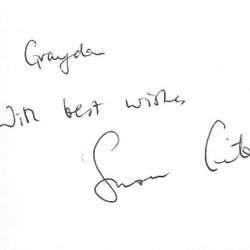 Graydon
With best wishes
Susan